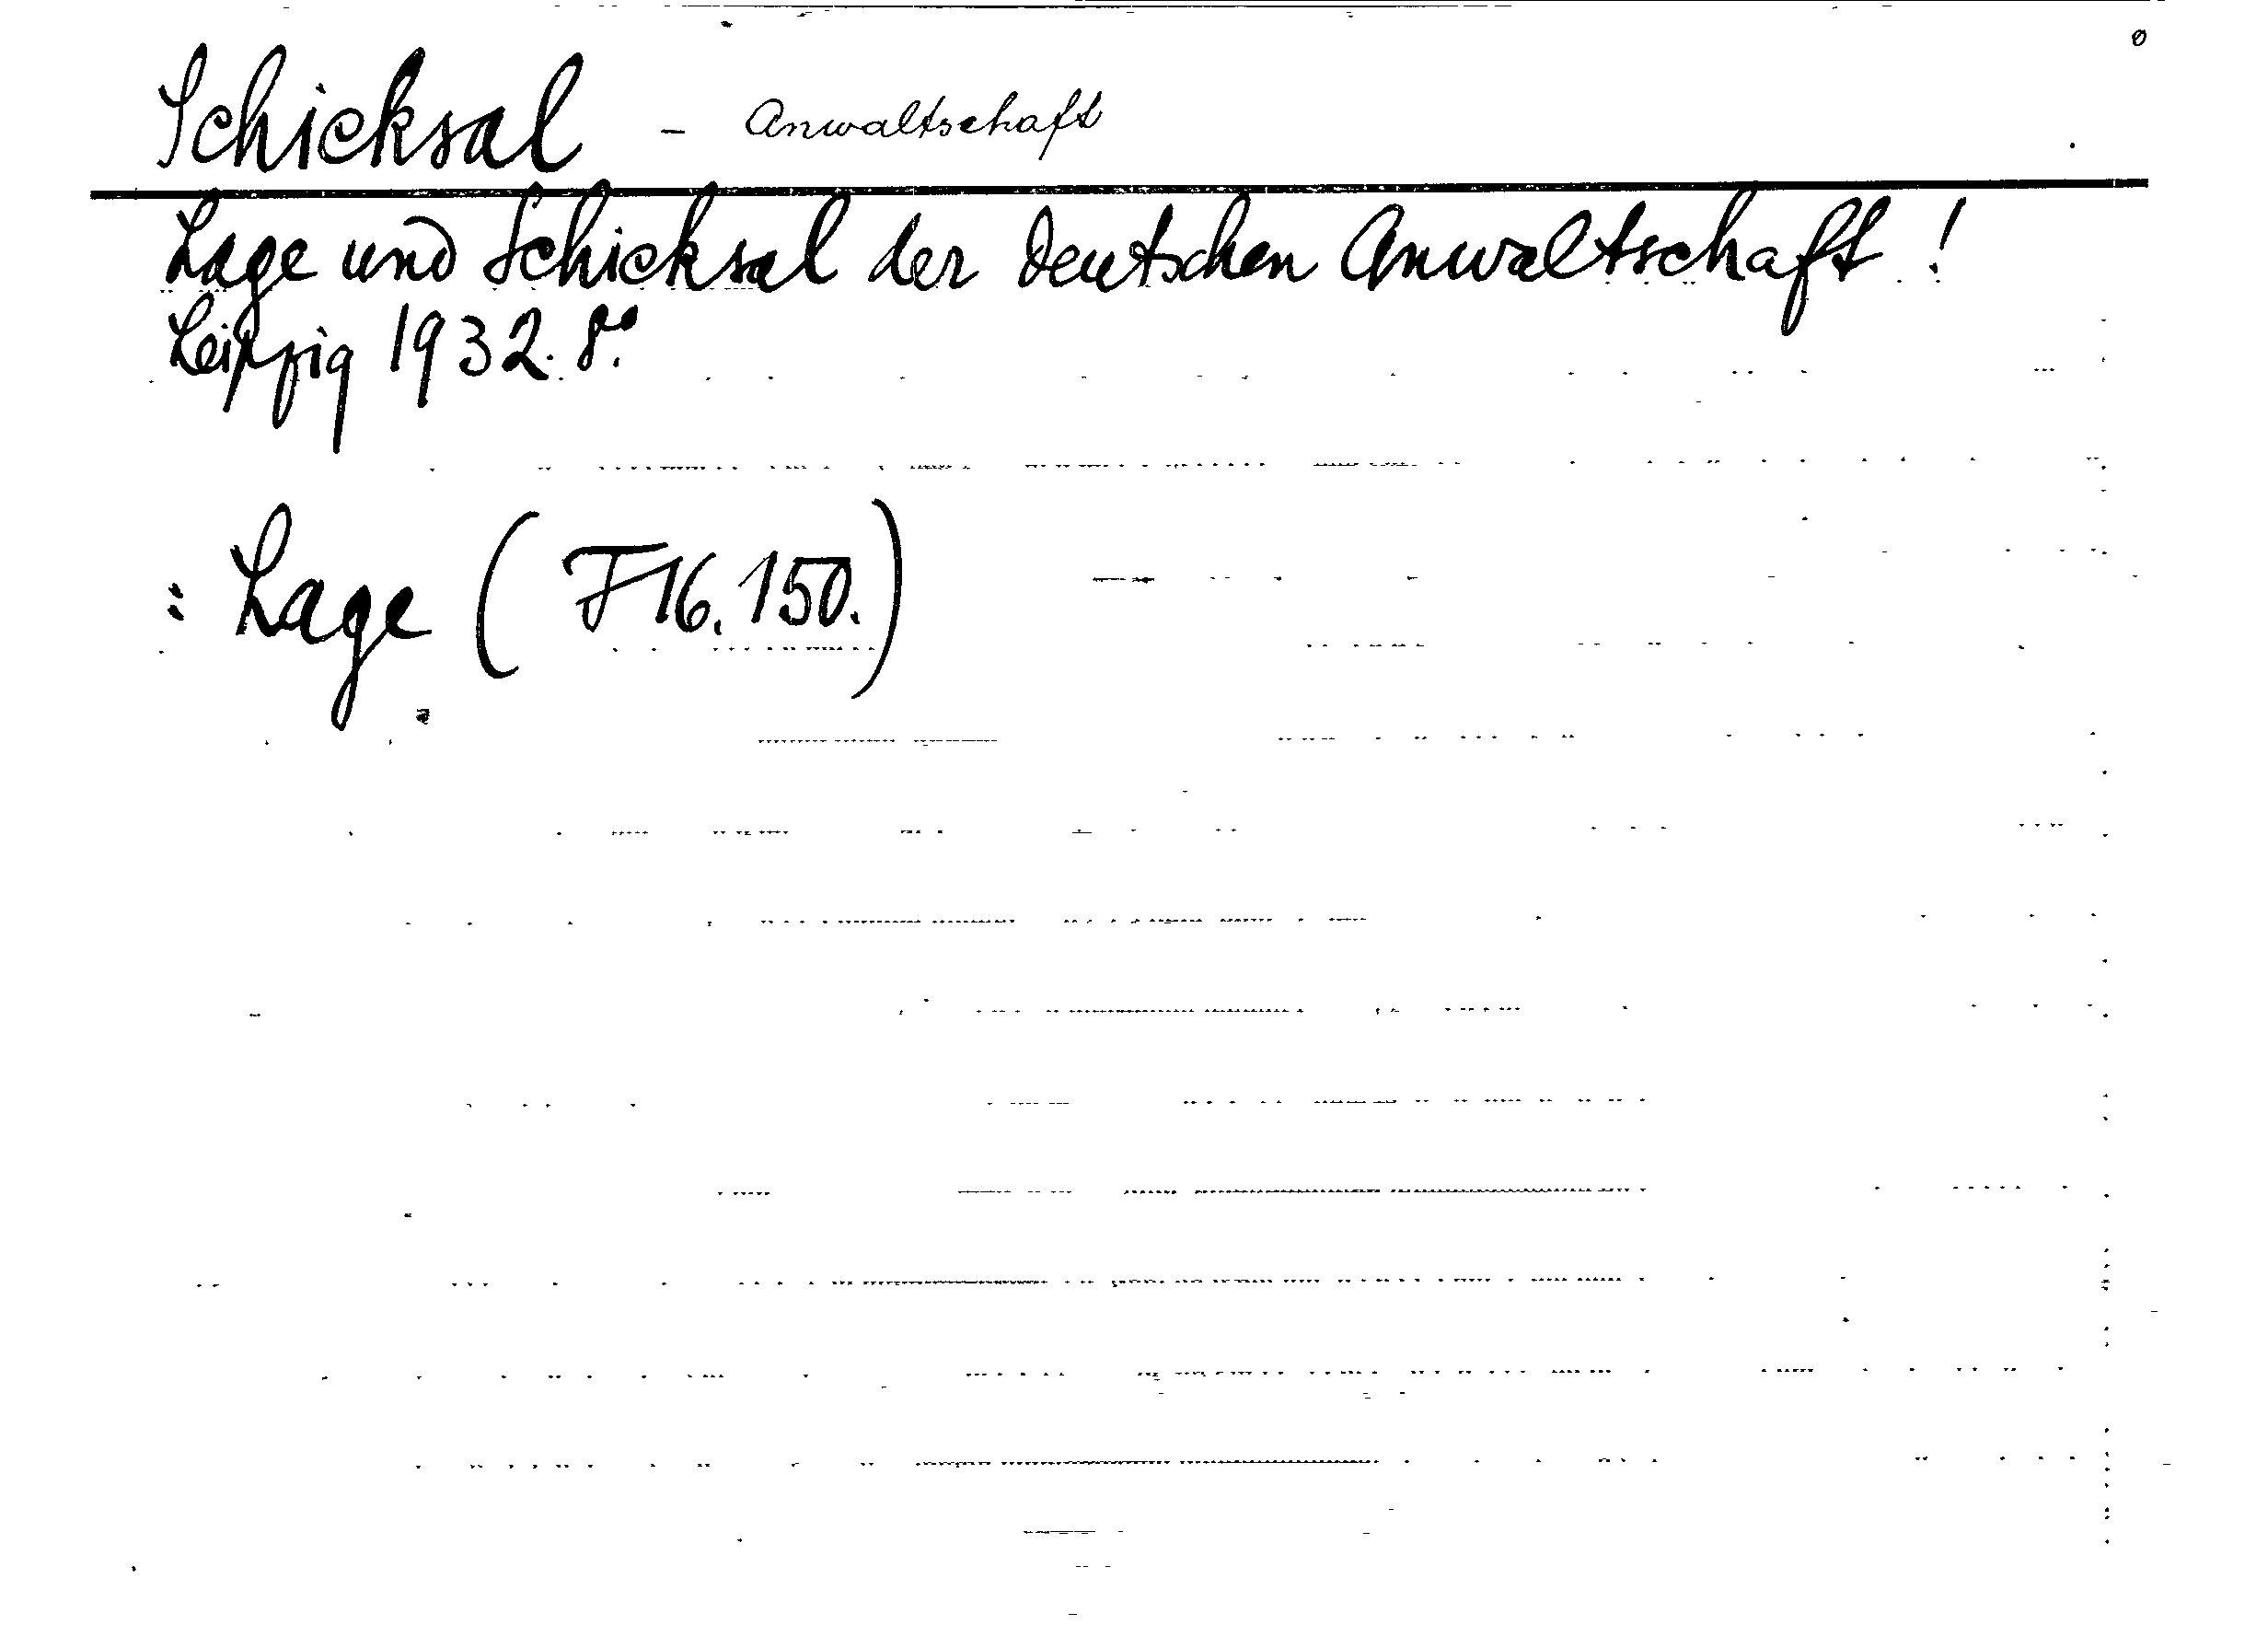 Schicksal - Anwaltschaft
Lage und Schicksal der deutschen Anwaltschaft!
Leipzig 1932. 8°.
: Lage (F 16. 150.)